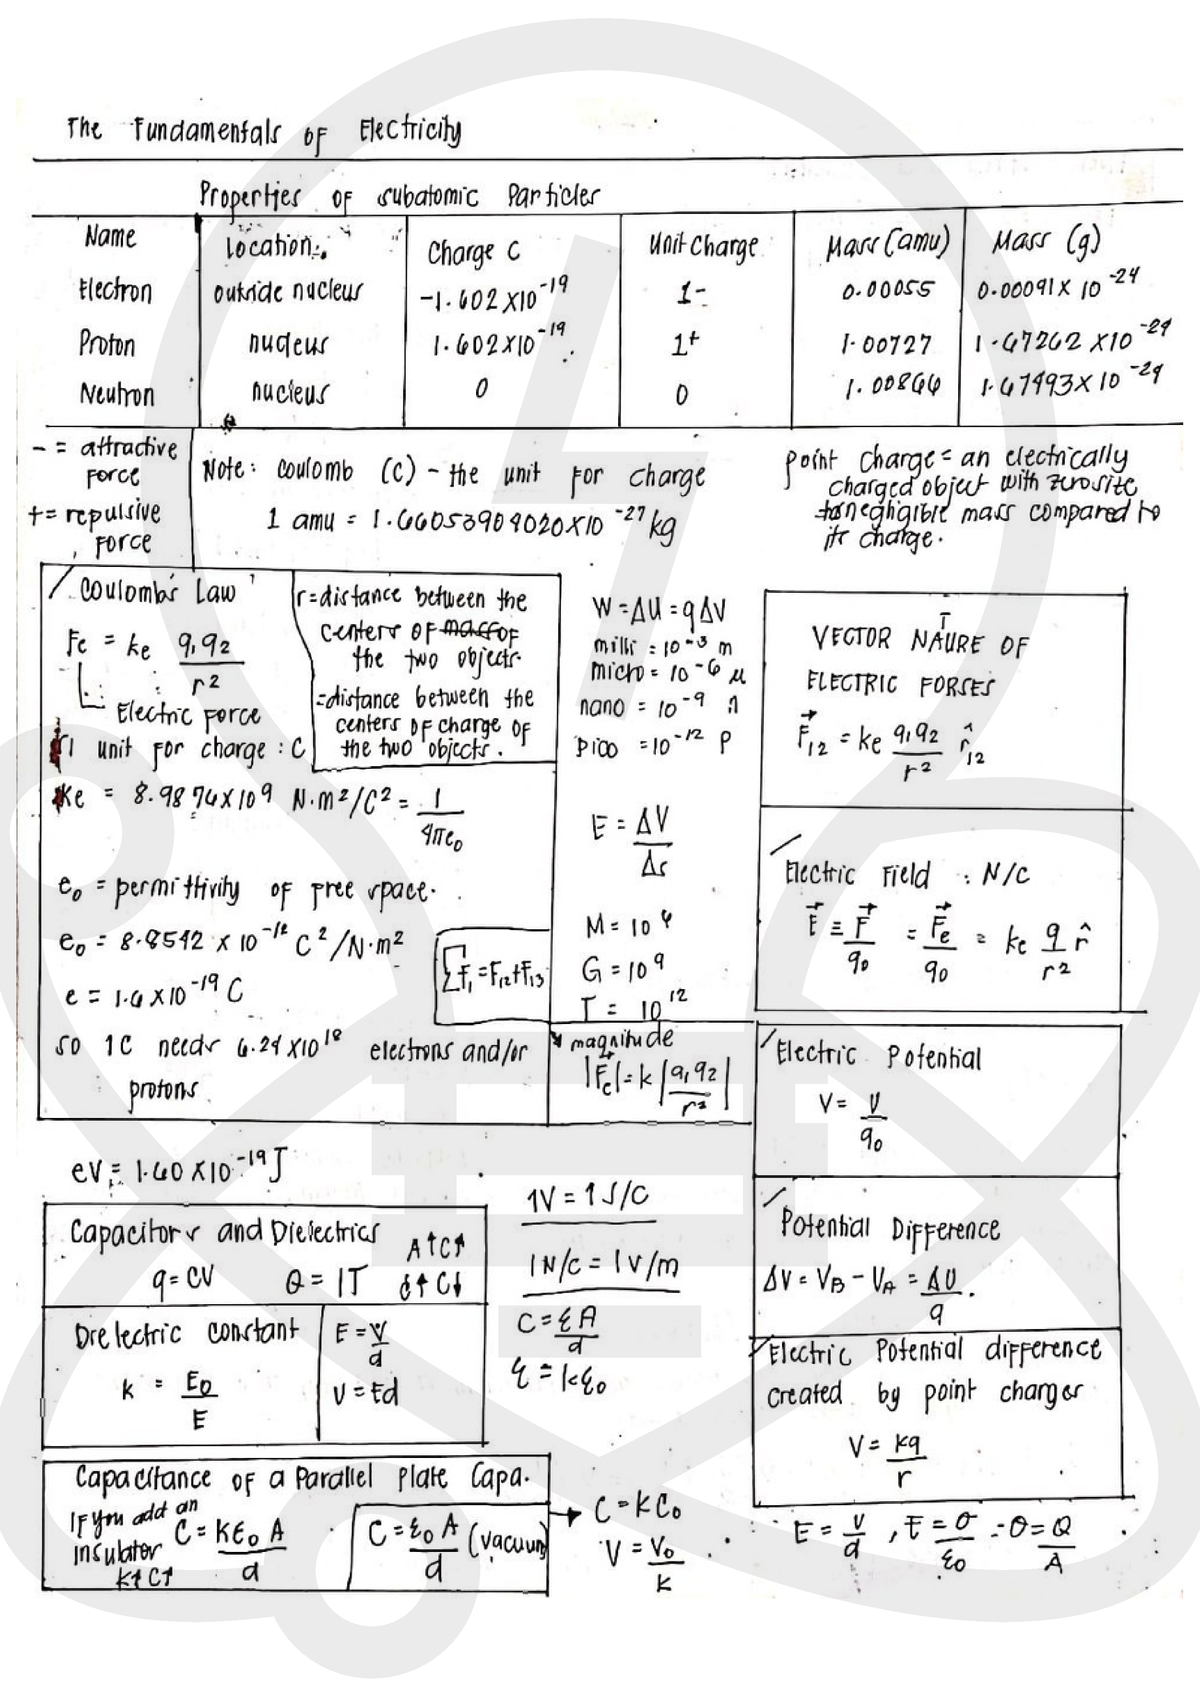 The Fundamentals of Electricity
Properties of subatomic Particles
Name Location Charge C Unit Charge Mass (amu) Mass (g)
Electron outside nucleus -1.602 x 10^-19 1- 0.00055 0.00091 x 10^-24
Proton nucleus 1.602 x 10^-19 1+ 1.00727 1.67262 x 10^-24
Neutron nucleus 0 0 1.00866 1.67493 x 10^-24
- = attractive force
+ = repulsive force
Note: Coulomb (C) - the unit for charge
1 amu = 1.66053904020 x 10^-27 kg
point charge = an electrically
charged object with zero size
negligible mass compared to
its charge.
Coulomb's Law
Fe = ke q1q2/r^2
Electric Force
unit for charge : C
r = distance between the
centers of
the two objects.
= distance between the
centers of charge of
the two objects.
ke = 8.9876 x 10^9 N·m^2/C^2 = 1/4πe0
e0 = permittivity of free space.
e0 = 8.8542 x 10^-12 C^2/N·m^2
e = 1.6 x 10^-19 C
ΣF1 = F12 + F13
so 1C needs 6.24 x 10^18 electrons and/or
protons
W = ΔU = qΔV
milli = 10^-3 m
micro = 10^-6 μ
nano = 10^-9 n
pico = 10^-12 p
E = ΔV/Δs
M = 10^6
G = 10^9
T = 10^12
magnitude
|Fe| = k |q1q2/r^2|
VECTOR NATURE OF
ELECTRIC FORSES
F12 = ke q1q2/r^2 r̂12
Electric Field : N/C
E = F/q0 = Fe/q0 = ke q/r^2 r̂
Electric Potential
V = U/q0
Potential Difference
ΔV = VB - VA = ΔU/q.
Electric Potential difference
created by point charges
V = kq/r
eV = 1.60 x 10^-19 J
Capacitors and Dielectrics
q = CV Q = IT
A↑C↑
d↑C↓
Dielectric constant
k = E0/E
E = V/d
V = Ed
1V = 1J/C
1N/C = 1V/m
C = εA/d
ε = kε0
Capacitance of a Parallel Plate Capa.
If you add an
insulator
k↑C↑
C = Kε0A/d
C = ε0A/d (vacuum)
C = KC0
V = V0/K
E = V/d , E = σ/ε0 - σ = Q/A